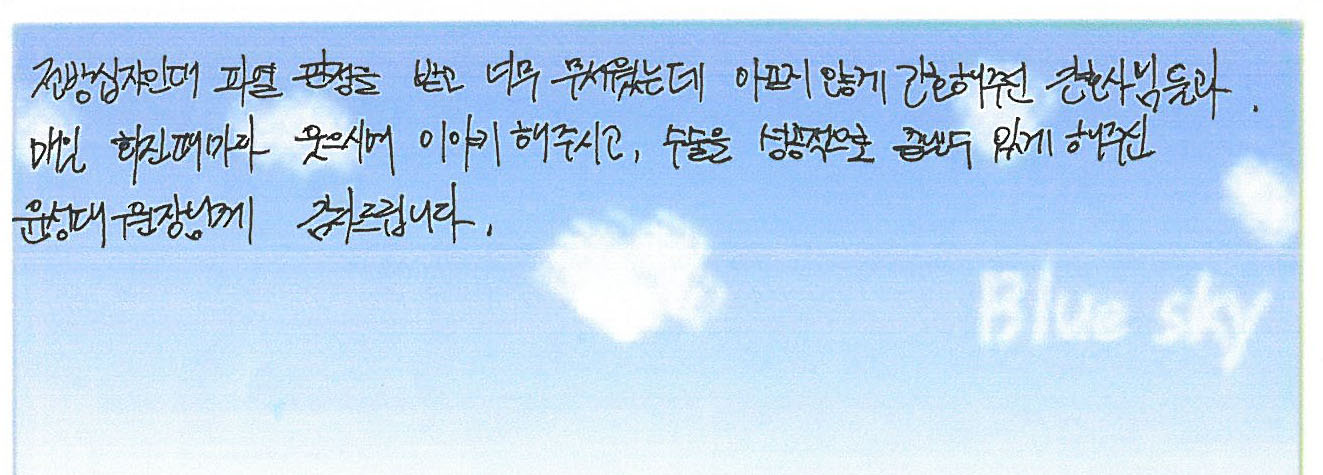 전방십자인대 파열 판정을 받고 너무 무서웠는데 아프지 않게 간호해주신 간호사님들과.
매일 회진때마다 웃으시며 이야기 해주시고, 수술을 성공적으로 끝낼수 있게 해주신
윤성대 원장님께 감사드립니다.
Blue sky